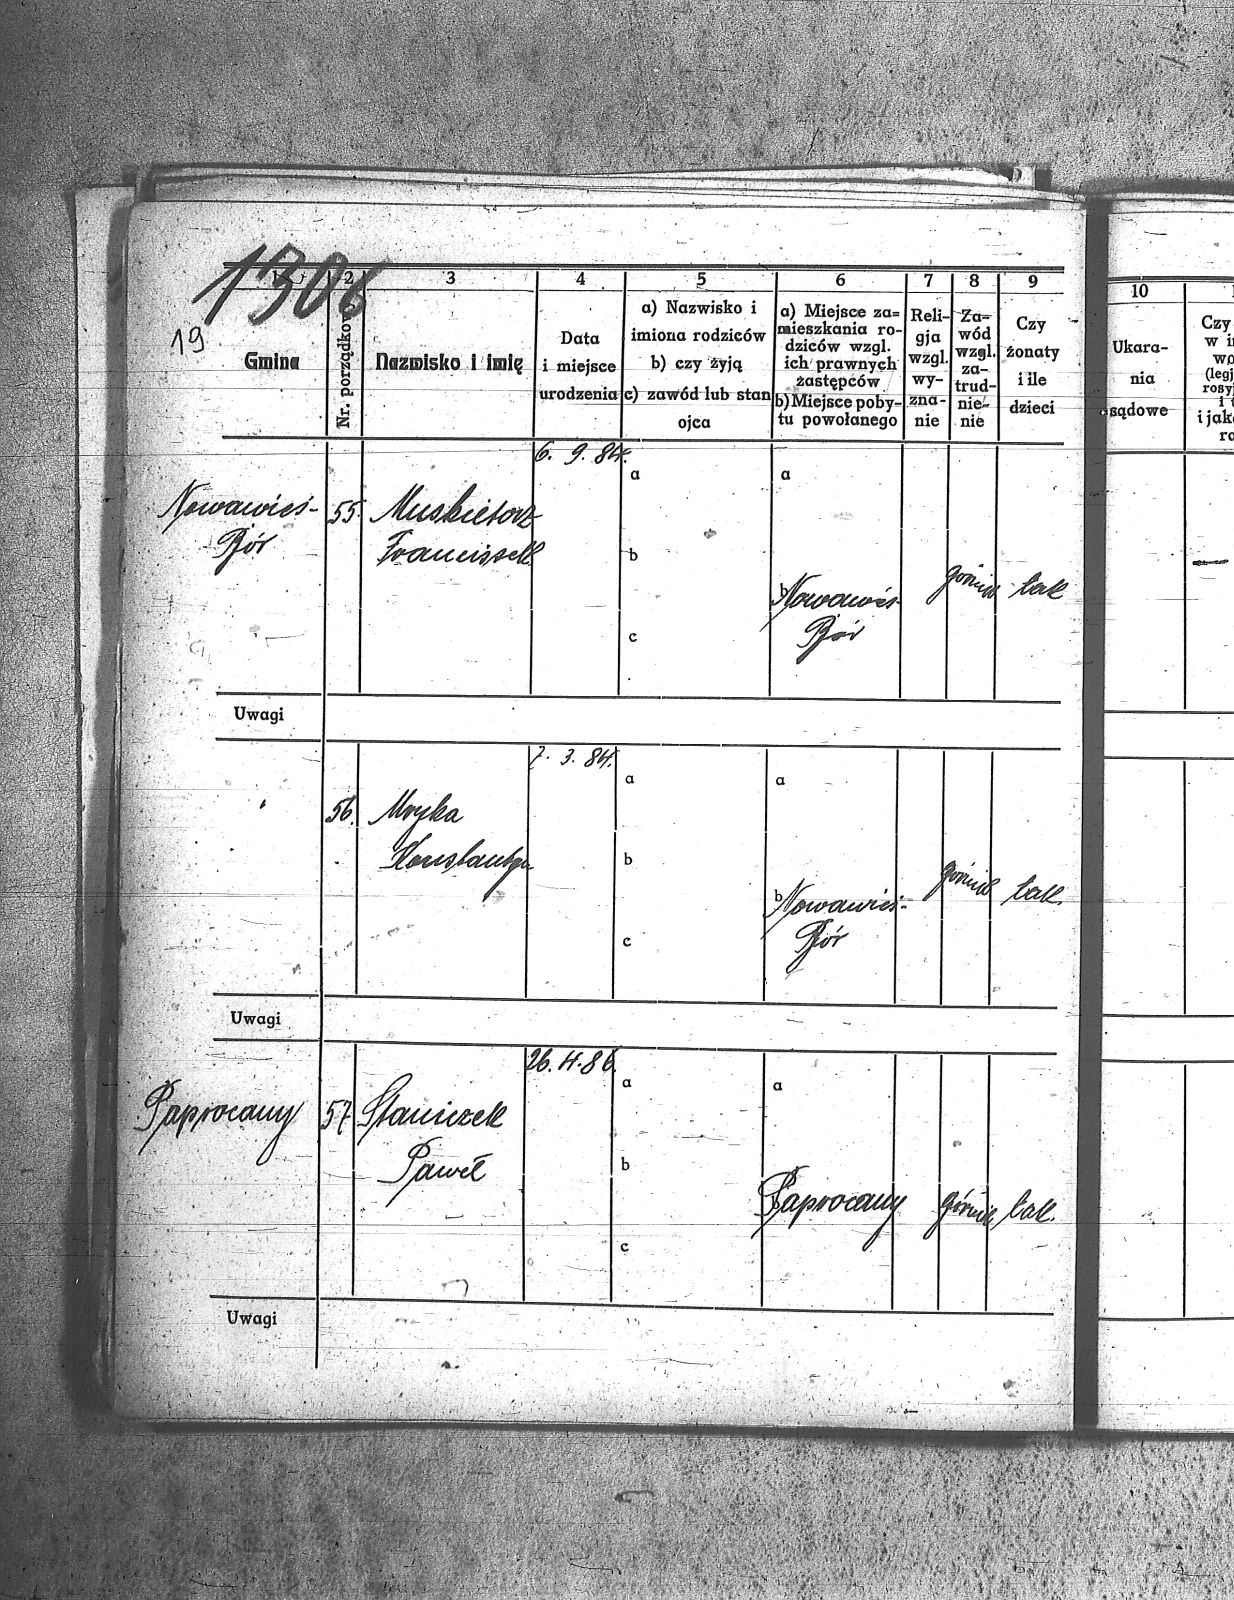 1306
19
1 2 3 4 5 6 7 8 9
Gmina
Nr. porządkow
Nazwisko i imię
Data
i miejsce
urodzenia
a) Nazwisko i
imiona rodziców
b) czy żyją
c) zawód lub stan
ojca
a) Miejsce za=
mieszkania ro-
dziców wzgl.
ich prawnych
zastępców
b) Miejsce poby-
tu powołanego
Reli-
gja
wzgl.
wy-
zna-
nie
Za=
wód
wzgl.
za-
trud-
nie-
nie
Czy
żonaty
i ile
dzieci
10
Ukara-
nia
sądowe
Czy
w i
wo
(legj
rosyj
i
i jak
ra
6. 9. 84.
a
a
Nowawieś-
Bór
55.
Muskietorz
Franciszek
b
b
Nowawieś-
Bór
górnik
tak
c
Uwagi
7. 3. 84.
a
a
56.
Mryka
Konstantyn
b
b
Nowawieś-
Bór
górnik
tak
c
Uwagi
26. 4. 86.
a
a
Paprocany
57
Staniczek
Paweł
b
Paprocany
górnik
tak
c
Uwagi